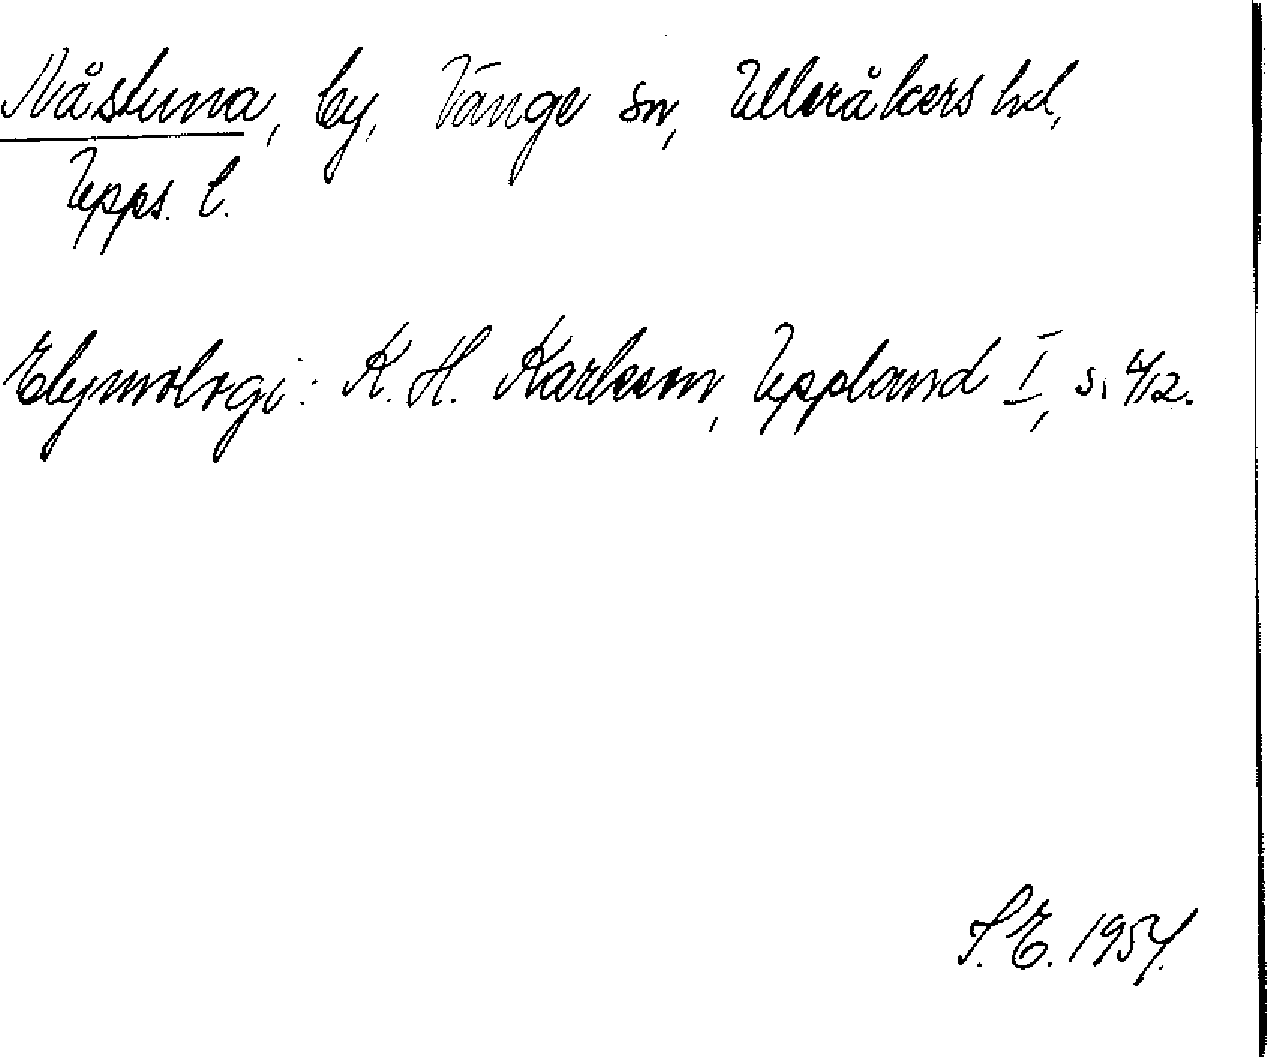 Nåstuna, by, Vänge sn, Ulleråkers hd,
Upps. l.
Etymologi: K. H. Karlsson, Uppland I, s. 412.
S. E. 1954.